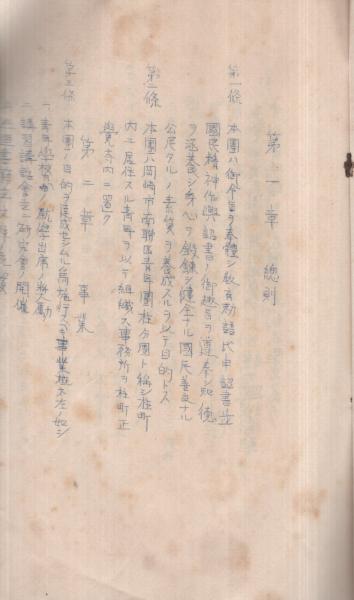 第一章 總則
第一條 本團ハ御令旨ヲ奉體シ敎育勅語戊申詔書並
國民精神作興詔書ノ御趣旨ヲ遵奉シ知德
ヲ涵養シ身心ヲ鍛鍊シ健全ナル國民善良ナル
公民タルノ素質ヲ養成スルヲ以テ目的トス
第二條 本團ハ岡崎市南聯區靑年團桂分團ト稱シ桂町
內ニ居住スル靑年ヲ以テ組織ス事務所ヲ桂町正
覺寺內ニ置ク
第二章 事業
第三條 本團ノ目的ヲ達成センカ爲施行スベキ事業槪ネ左ノ如シ
一、靑年學校 就學出席ノ奬勵
二、講習講話會並ニ研究會ノ開催